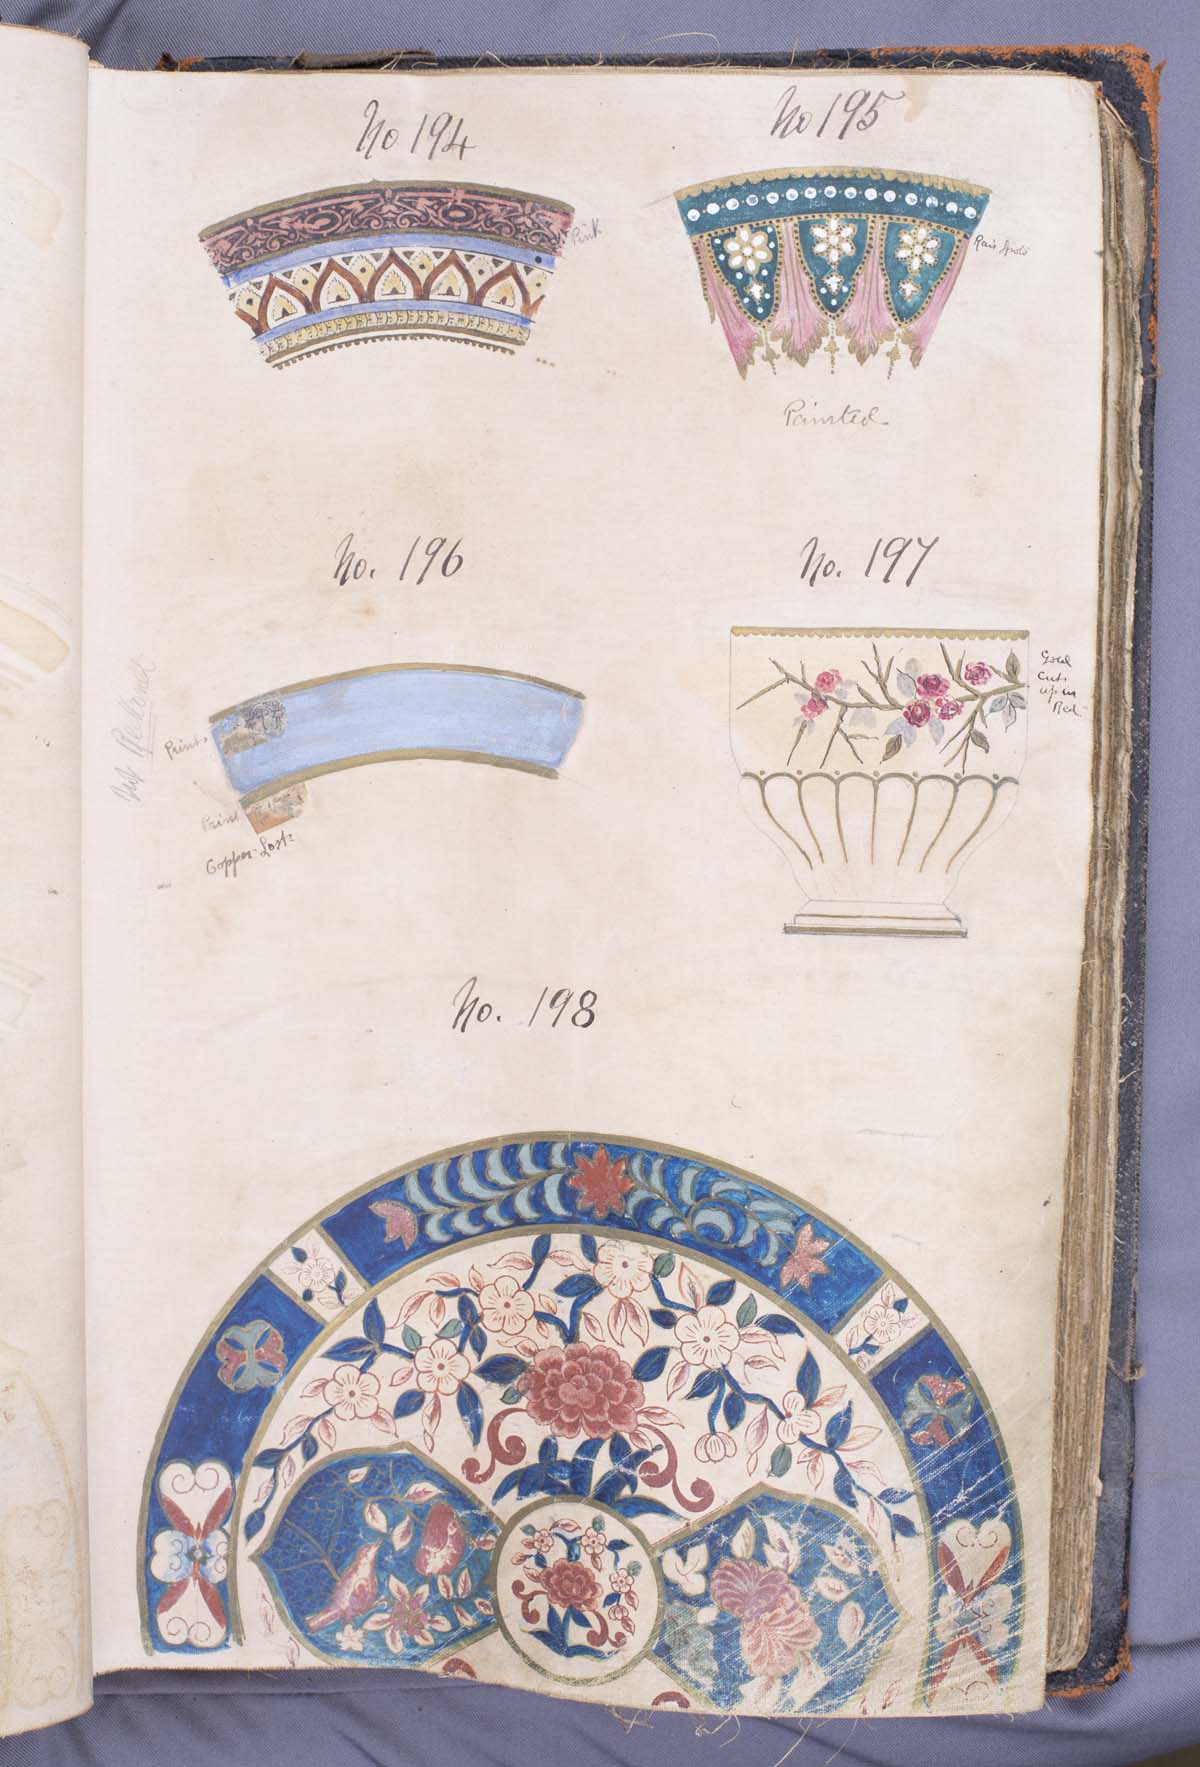 No 194
Pink
No 195
Rais Spots
Painted
No. 196
Print
Print
Copper-Lost
No. 197
Gold
Cuts
up in
Red
No. 198